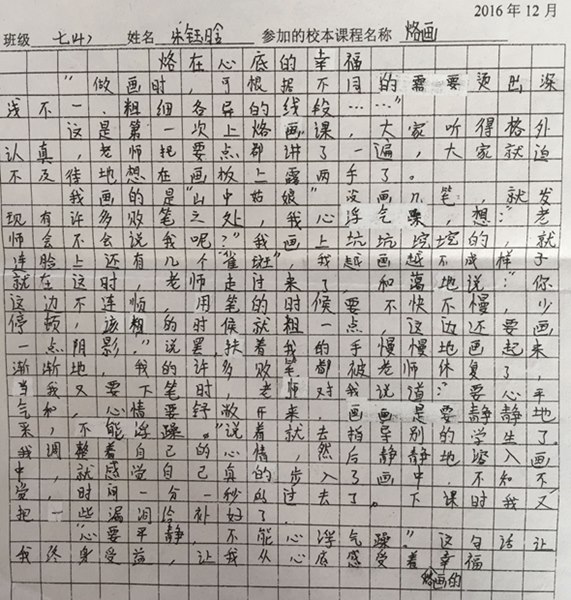 2016年12月
班级 七(4) 姓名 乐钰晗 参加的校本课程名称 烙画
烙在心底的幸福
“做画时,可根据不同的需要烫出深
浅不一、粗细各异的线段……”
这是第一次上烙画课,大家听得格外
认真,老师把要点都讲了一遍,大家就迫
不及待地想在画板上露两手了。
我画的是“山中姑娘”没画几笔,就发
现有许多败笔之处,我心浮气躁,想:“老
师会不会说我呢?”我画上坑坑挖挖的,就
连脸上还有几个“雀斑”,我越画越不成样子
就在这时,老师走过来了,和蔼地说:“你
这边不连顺,用笔的时候要不快不慢,少
停顿,该粗的时候就粗一点,这边还要画
一点阴影。”说罢,扶着我的手慢慢地画起来
渐渐地,我的许多败笔都被老师休复了,
当我又要下笔时,老师对我说道:“要心平
气和,心情要舒敞开来,画画是要静静地
来,不能浮躁。”说着就去指导别的学生了。
我调整着自己的心情,然后静静地溶入画
中,就感觉自己真的步入了画中,不知不
觉,时间一分一秒的过去了。下课时我又
把一些漏洞给补好了。
“心要平静,不能心浮气躁。”这句话让
我终身受益,让我从心底感受着幸福
烙画的